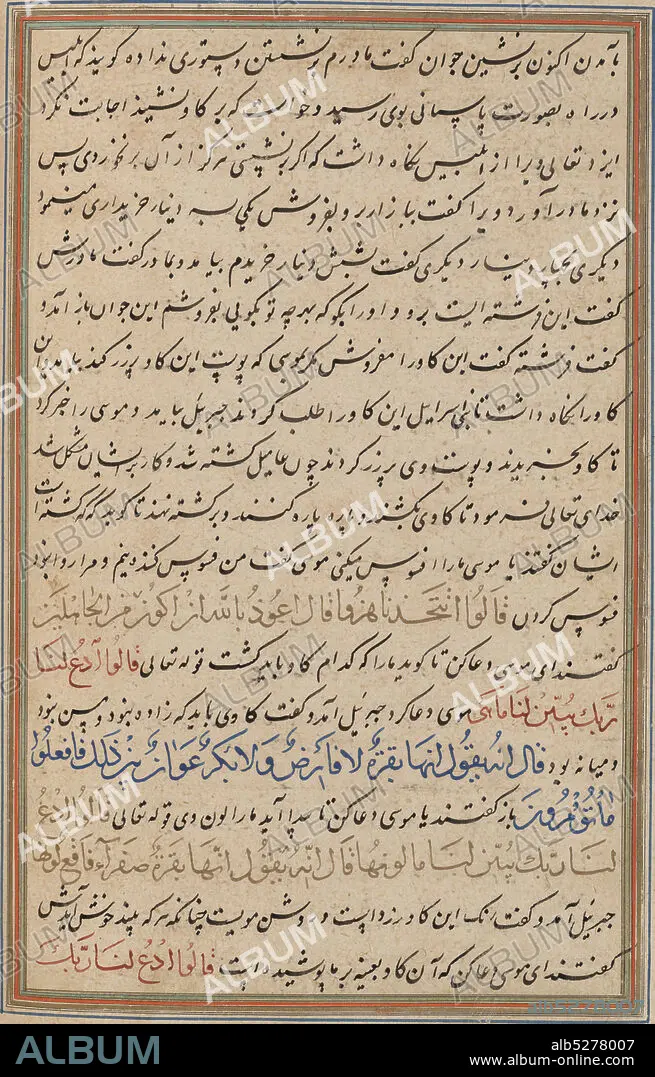 بامدن اکنون برنشین جوان گفت مادرم برنشستن دستوری نداده گویند که ابلیس
در راه بصورت پاسبانی بوی رسید و خواست که بر گاو نشیند اجابت نکرد
ایزد تعالی ویرا از ابلیس نگاه داشت که اگر برنشستی هرگز از آن برنخوردی پس
نزد مادر آورد ویرا گفت ببازار بر و بفروش یکی بسه دینار خریداری مینمود
دیگری بچهار دینار دیگری گفت بشش دینار خریدم بیامد و بمادر گفت مادرش
گفت این فرشته است برو و او را بگو که بهرچه تو بگویی بفروشم این جوان باز آمد و
گفت فرشته گفت این گاو را مفروش مگر بموسی که پوست این گاو پر زر کند
گاو را نگاه داشت تا بنی اسراییل این گاو را طلب کردند جبرییل بیامد و موسی را خبر کرد
تا گاو بخریدند و پوست وی پر زر کردند چون عامیل کشته شد و کار بریشان مشکل شد
خدای تعالی فرمود تا گاوی بکشند و پاره کنند و بر کشته نهند تا گوید که که کشته است
ایشان گفتند یا موسی ما را افسوس میکنی موسی گفت من فسوس کننده نیم و مرا روا نبود
فسوس کردن قَالُوا أَتَتَّخِذُنَا هُزُوًا قَالَ أَعُوذُ بِاللَّهِ أَنْ أَكُونَ مِنَ الْجَاهِلِينَ
گفتند ای موسی دعا کن تا گوید ما را که کدام گاو باید کشت قوله تعالی قَالُوا ادْعُ لَنَا
رَبَّكَ يُبَيِّن لَنَا مَا هِيَ موسی دعا کرد جبرییل آمد و گفت گاوی باید که نزاده بود و پس نبود
و میانه بود قَالَ إِنَّهُ يَقُولُ إِنَّهَا بَقَرَةٌ لَا فَارِضٌ وَلَا بِكْرٌ عَوَانٌ بَيْنَ ذَلِكَ فَافْعَلُوا
مَا تُؤْمَرُونَ باز گفتند یا موسی دعا کن تا پیدا آید ما را لون وی قوله تعالی قَالُوا ادْعُ
لَنَا رَبَّكَ يُبَيِّن لَنَا مَا لَوْنُهَا قَالَ إِنَّهُ يَقُولُ إِنَّهَا بَقَرَةٌ صَفْرَاءُ فَاقِعٌ لَوْنُهَا
جبرییل آمد و گفت رنگ این گاو زرد است و روشن مویست چنانکه هر که بیند خوش آیدش
گفتند ای موسی دعا کن که آن گاو بعینه بر ما پوشیده است قَالُوا ادْعُ لَنَا رَبَّكَ
ALBUM
alb5278007
www.album-online.com